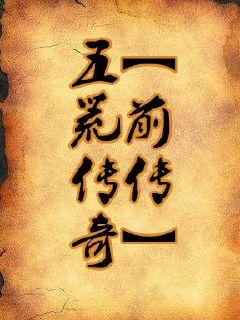 五荒传奇
【前传】